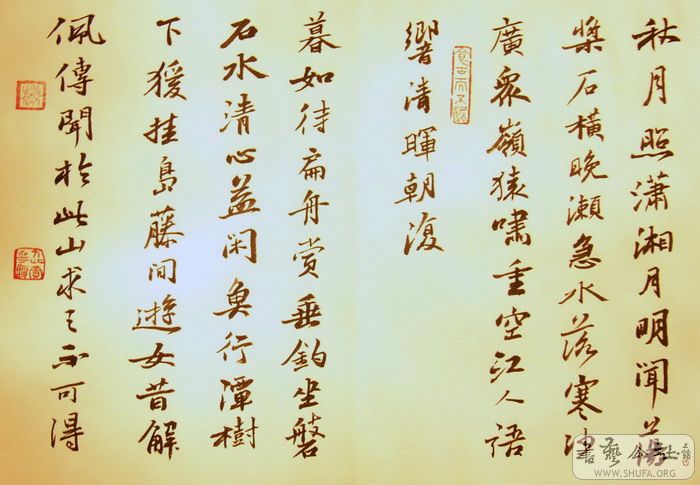 秋月照潇湘月明聞蕩
槳石橫晚瀨急水落寒沙
廣眾嶺猿嘯重空江人語
響清暉朝復
暮如待扁舟赏垂釣坐磐
石水清心益闲魚行潭樹
下猨挂島藤间遊女昔解
佩傳聞於此山求之不可得
WWW.SHUFA.ORG